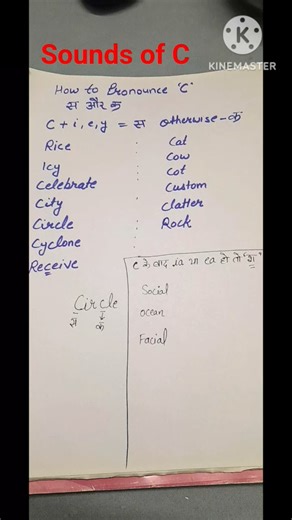 Sounds of C
KINEMASTER
How to Pronounce 'C'
स और क
C + i, e, y = स otherwise - क
Rice : Cat
Icy : Cow
Celebrate : Cot
City : Custom
Circle : Clatter
Cyclone : Rock
Receive
c के बाद ia या ea हो तो 'श'
Circle
स क
Social
Ocean
Facial